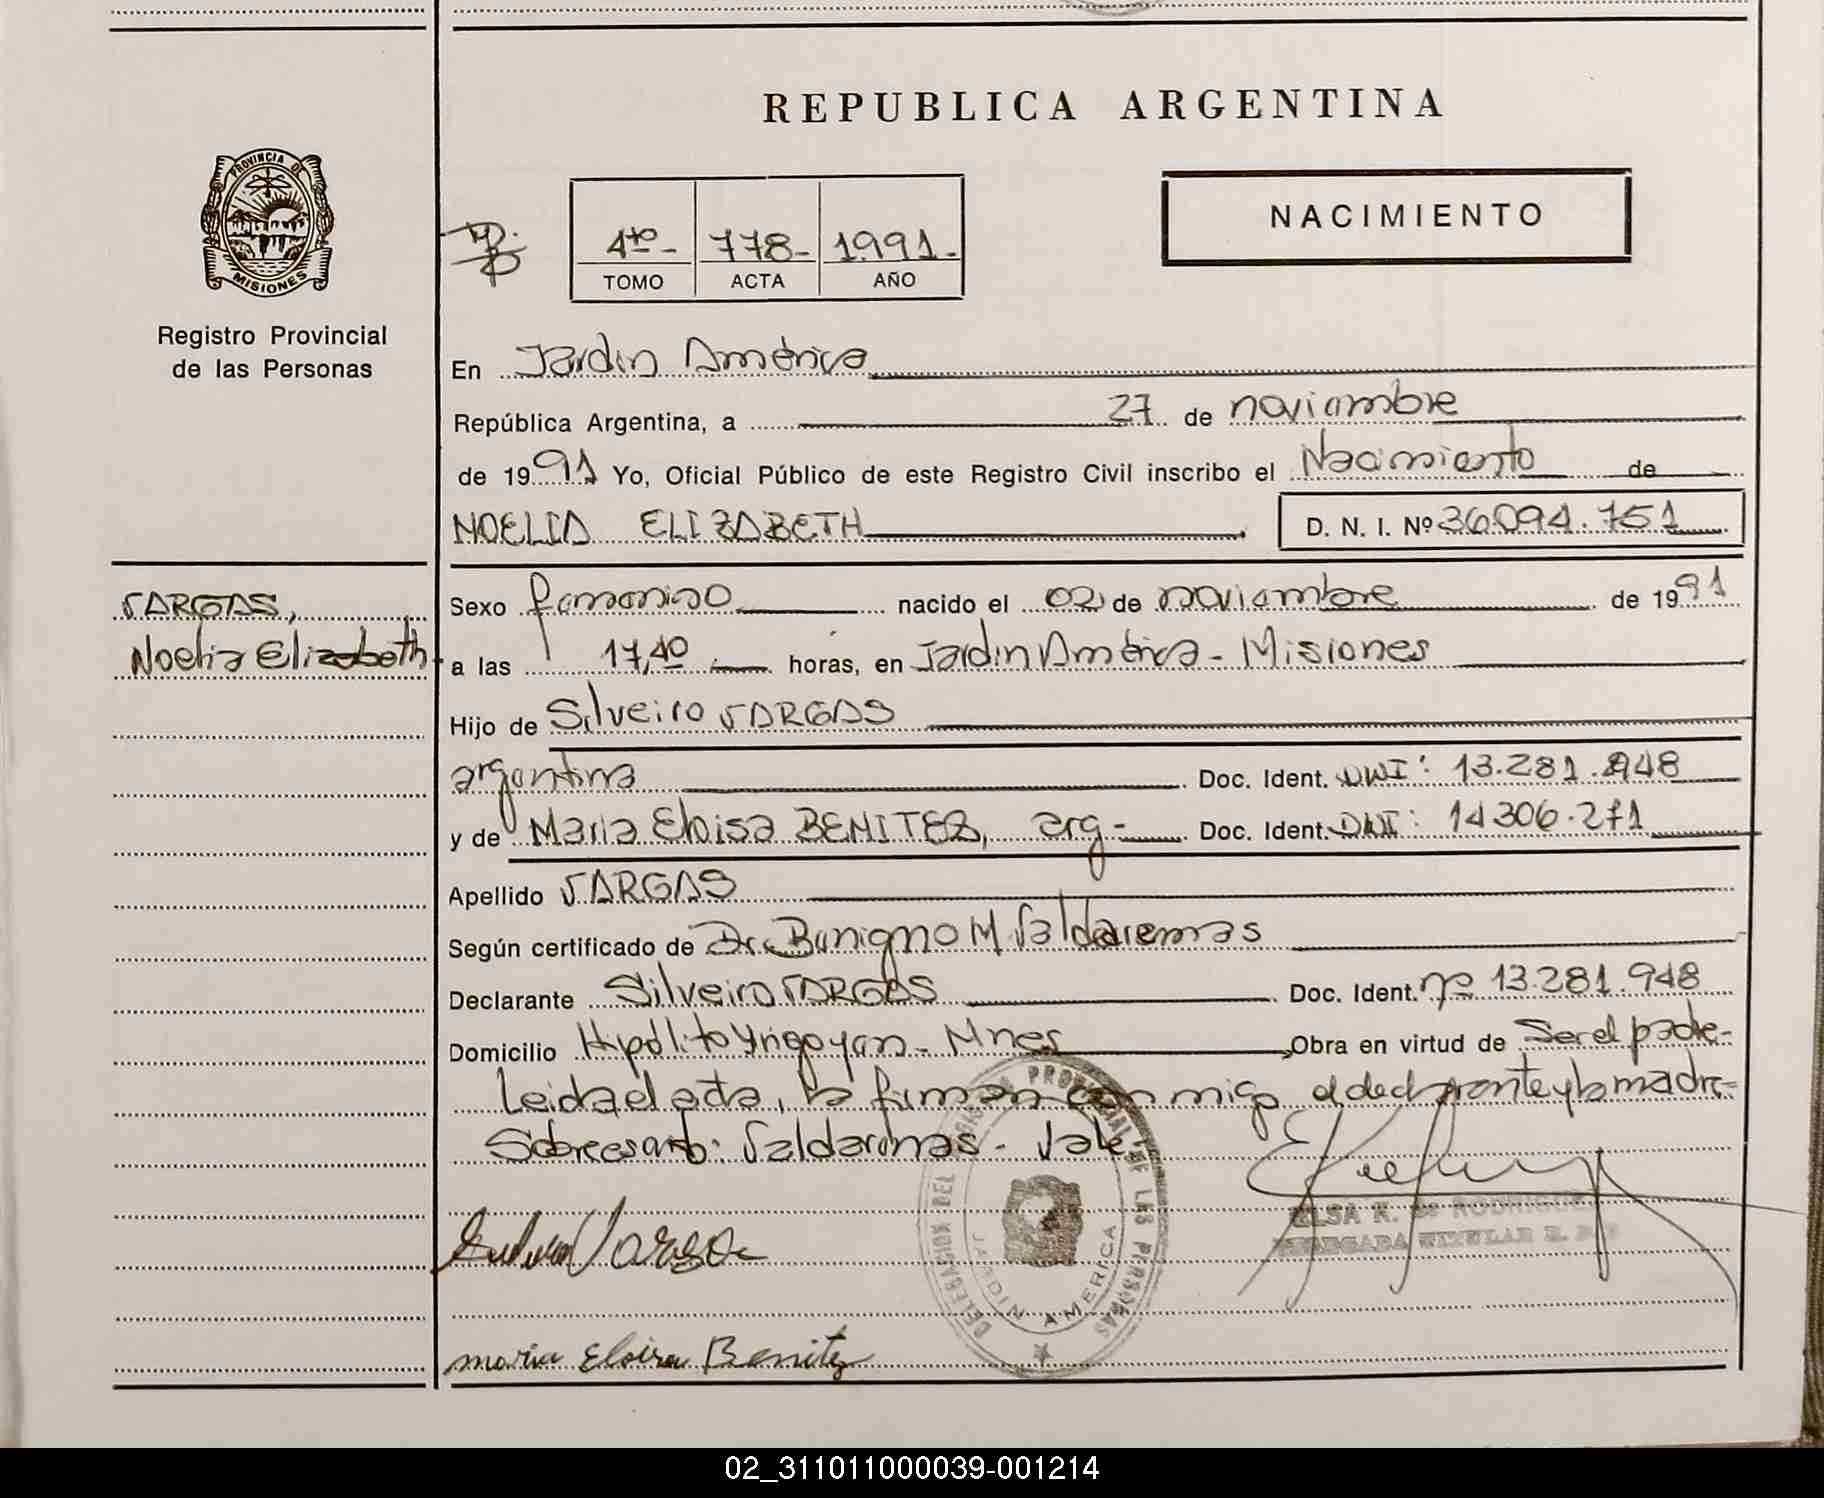 REPUBLICA ARGENTINA
PROVINCIA DE
MISIONES
Registro Provincial
de las Personas
4to- 778- 1.991.-
TOMO ACTA AÑO
NACIMIENTO
En Jardin América
República Argentina, a 27 de noviembre
de 1991 Yo, Oficial Público de este Registro Civil inscribo el Nacimiento de
NOELIA ELIZABETH D. N. I. Nº 36.094.751
VARGAS,
Noelia Elizabeth
Sexo femenino nacido el 02 de noviembre de 1991
a las 17,40 horas, en Jardin América - Misiones
Hijo de Silveiro VARGAS
argentina Doc. Ident. DNI: 13.281.948
y de Maria Eloisa BENITEZ, arg- Doc. Ident. DNI: 14306.271
Apellido VARGAS
Según certificado de Dr. Benigno M Valdarenas
Declarante Silveiro VARGAS Doc. Ident. nº 13.281.948
Domicilio Hipólito Yrigoyen - Mnes Obra en virtud de Ser el padre-
Leida el acta, la firman conmigo el declarante y la madre-
Sobreesando: Valdarenas - Vale
DELEGACION DEL REGISTRO PROVINCIAL DE LAS PERSONAS
JARDIN AMERICA
ELSA R. de RODRIGUEZ
ENCARGADA TITULAR R. P. P.
Vargas
maria Eloisa Benitez
02_311011000039-001214